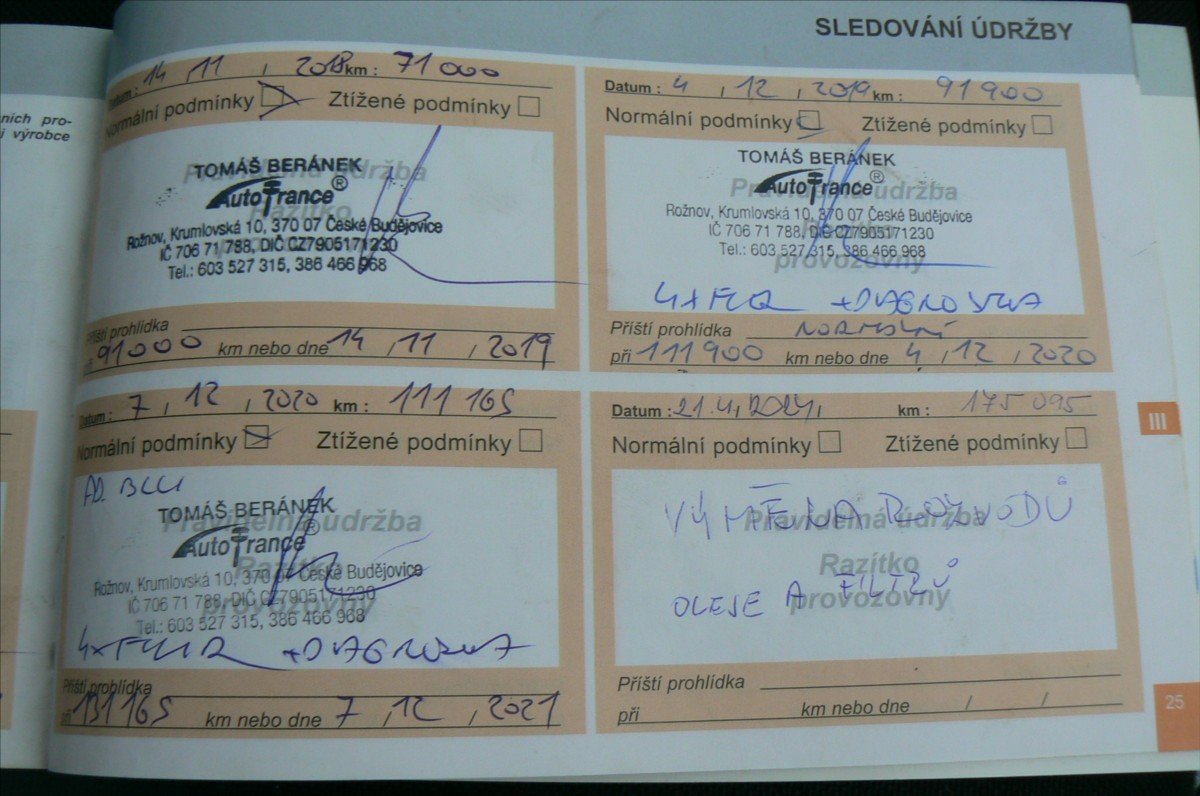 SLEDOVÁNÍ ÚDRŽBY
ních pro-
i výrobce
Datum : 14 , 11 , 2018 km : 71 000
Normální podmínky Ztížené podmínky
Pravidelná údržba
Razítko
provozovny
TOMÁŠ BERÁNEK
AutoTrance®
Rožnov, Krumlovská 10, 370 07 České Budějovice
IČ 706 71 788, DIČ CZ7905171230
Tel.: 603 527 315, 386 466 968
Příští prohlídka
při 91000 km nebo dne 14 , 11 , 2019
Datum : 4 , 12 , 2019 km : 91 900
Normální podmínky Ztížené podmínky
Pravidelná údržba
Razítko
provozovny
TOMÁŠ BERÁNEK
AutoTrance®
Rožnov, Krumlovská 10, 370 07 České Budějovice
IČ 706 71 788, DIČ CZ7905171230
Tel.: 603 527 315, 386 466 968
4x FILTR + DIAGNOSTIKA
Příští prohlídka NORMÁLNÍ
při 111900 km nebo dne 4 , 12 , 2020
Datum : 7 , 12 , 2020 km : 111 165
Normální podmínky Ztížené podmínky
AD BLUE
Pravidelná údržba
Razítko
provozovny
TOMÁŠ BERÁNEK
AutoTrance®
Rožnov, Krumlovská 10, 370 07 České Budějovice
IČ 706 71 788, DIČ CZ7905171230
Tel.: 603 527 315, 386 466 968
4x FILTR + DIAGNOSTIKA
Příští prohlídka
při 131165 km nebo dne 7 , 12 , 2021
Datum : 21.4, 2024, km : 175 095
Normální podmínky Ztížené podmínky
Pravidelná údržba
Razítko
provozovny
VÝMĚNA ROZVODŮ
OLEJE A FILTRŮ
Příští prohlídka
při km nebo dne / /
III
25